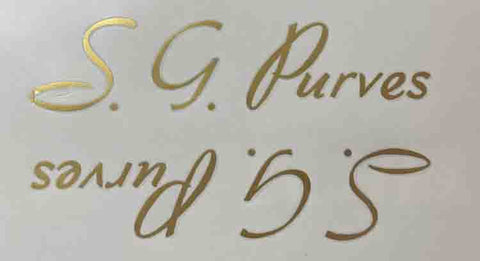 S. G. Purves
S. G. Purves